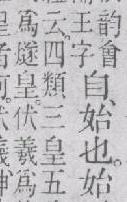 韵會
王字
自始也。始
云。四類三皇五
爲燧皇。伏羲爲